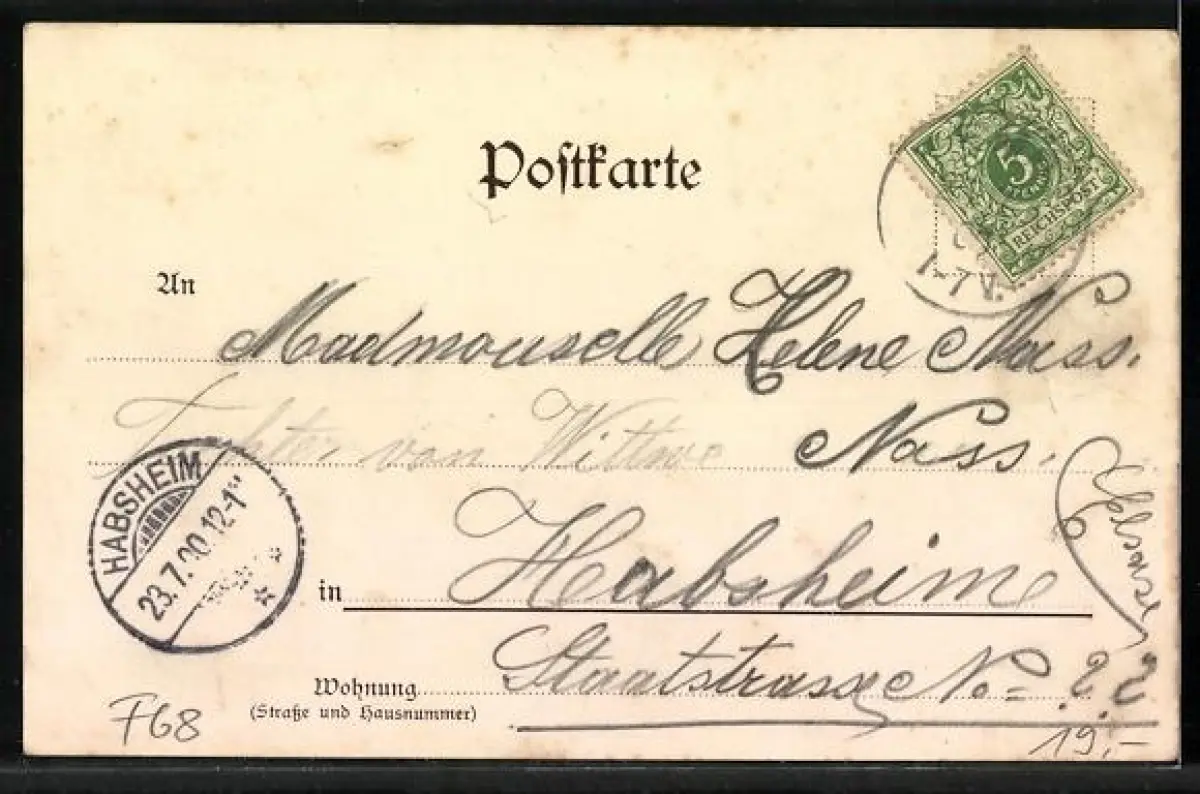 Postkarte
5
REICHSPOST
An
Madmouselle Helene Nass.
Tochter von Wittwe Nass.
Elsass
HABSHEIM
23.7.00.12-1
in Habsheim
Wohnung Staatstrasse No 22
(Straße und Hausnummer)
F68
19,-